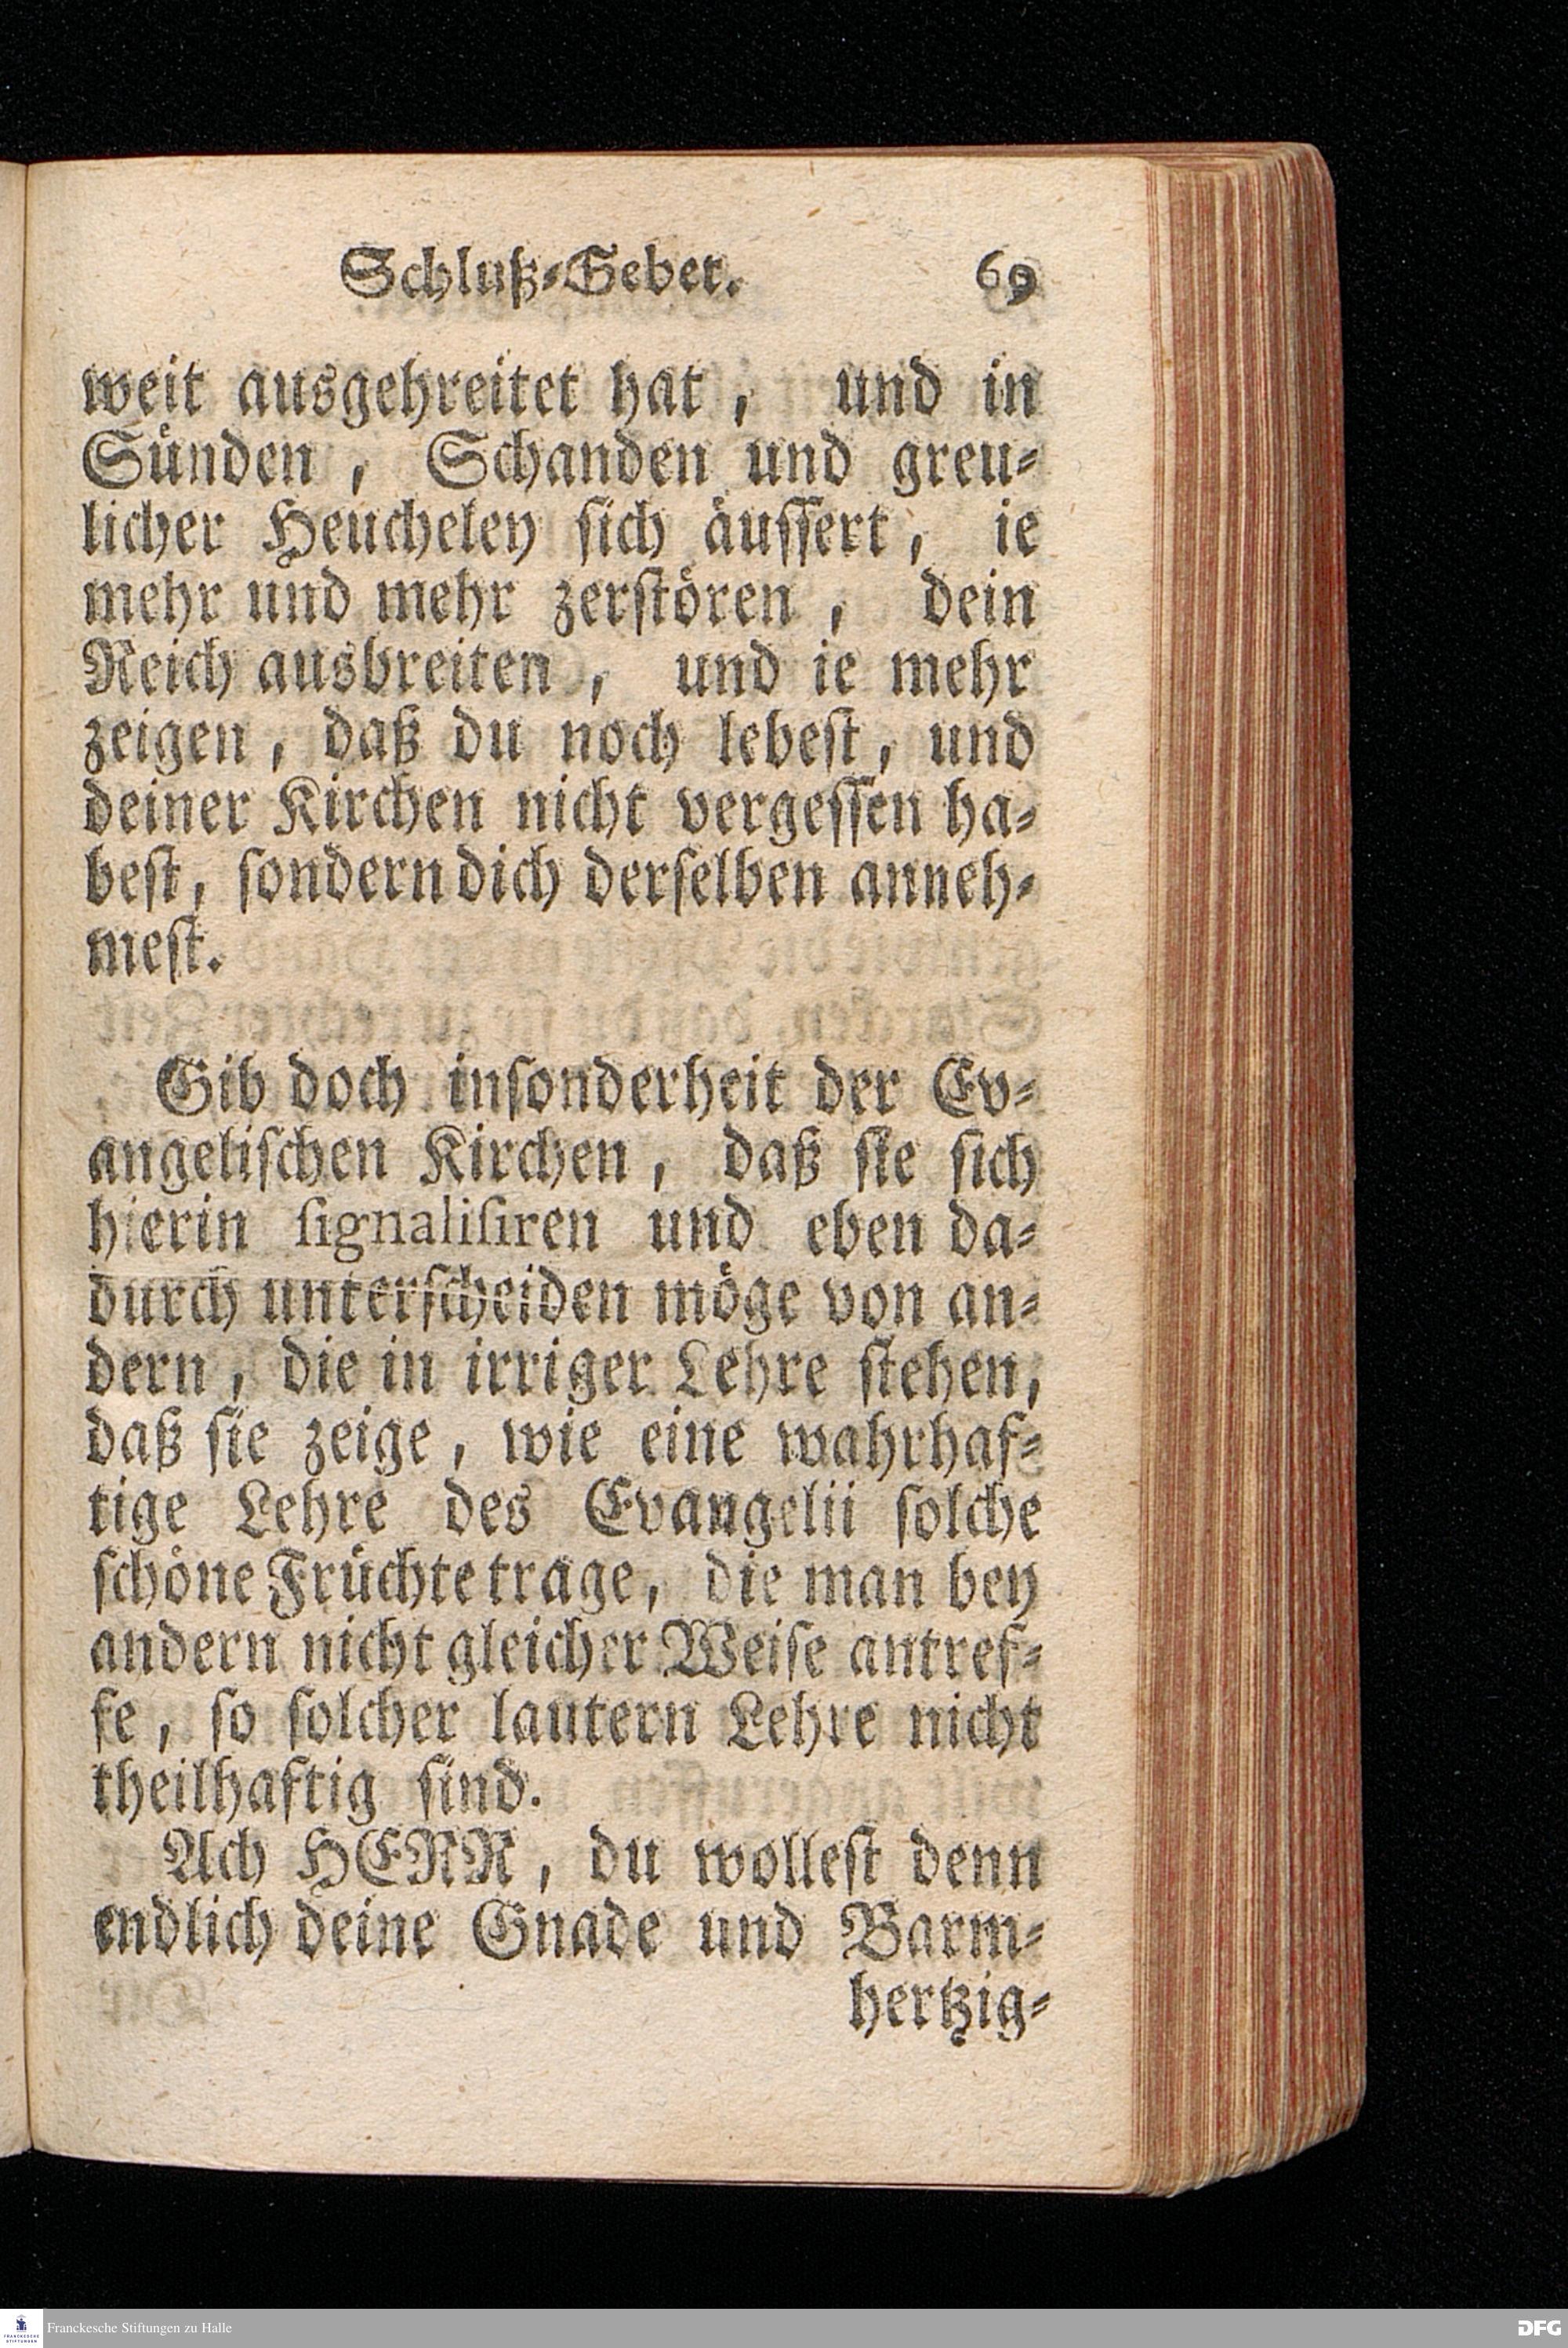 Schluß-Gebet. 69
weit ausgehreitet hat, und in
Sünden, Schanden und greu-
licher Heucheley sich äussert, ie
mehr und mehr zerstören, dein
Reich ausbreiten, und ie mehr
zeigen, daß du noch lebest, und
deiner Kirchen nicht vergessen ha-
best, sondern dich derselben anneh-
mest.
Gib doch insonderheit der Ev-
angelischen Kirchen, daß sie sich
hierin signalisiren und eben da-
durch unterscheiden möge von an-
dern, die in irriger Lehre stehen,
daß sie zeige, wie eine wahrhaf-
tige Lehre des Evangelii solche
schöne Früchte trage, die man bey
andern nicht gleicher Weise antref-
fe, so solcher lautern Lehre nicht
theilhaftig sind.
Ach HERR, du wollest denn
endlich deine Gnade und Barm-
hertzig-
FRANCKESCHE
STIFTUNGEN
Franckesche Stiftungen zu Halle
DFG